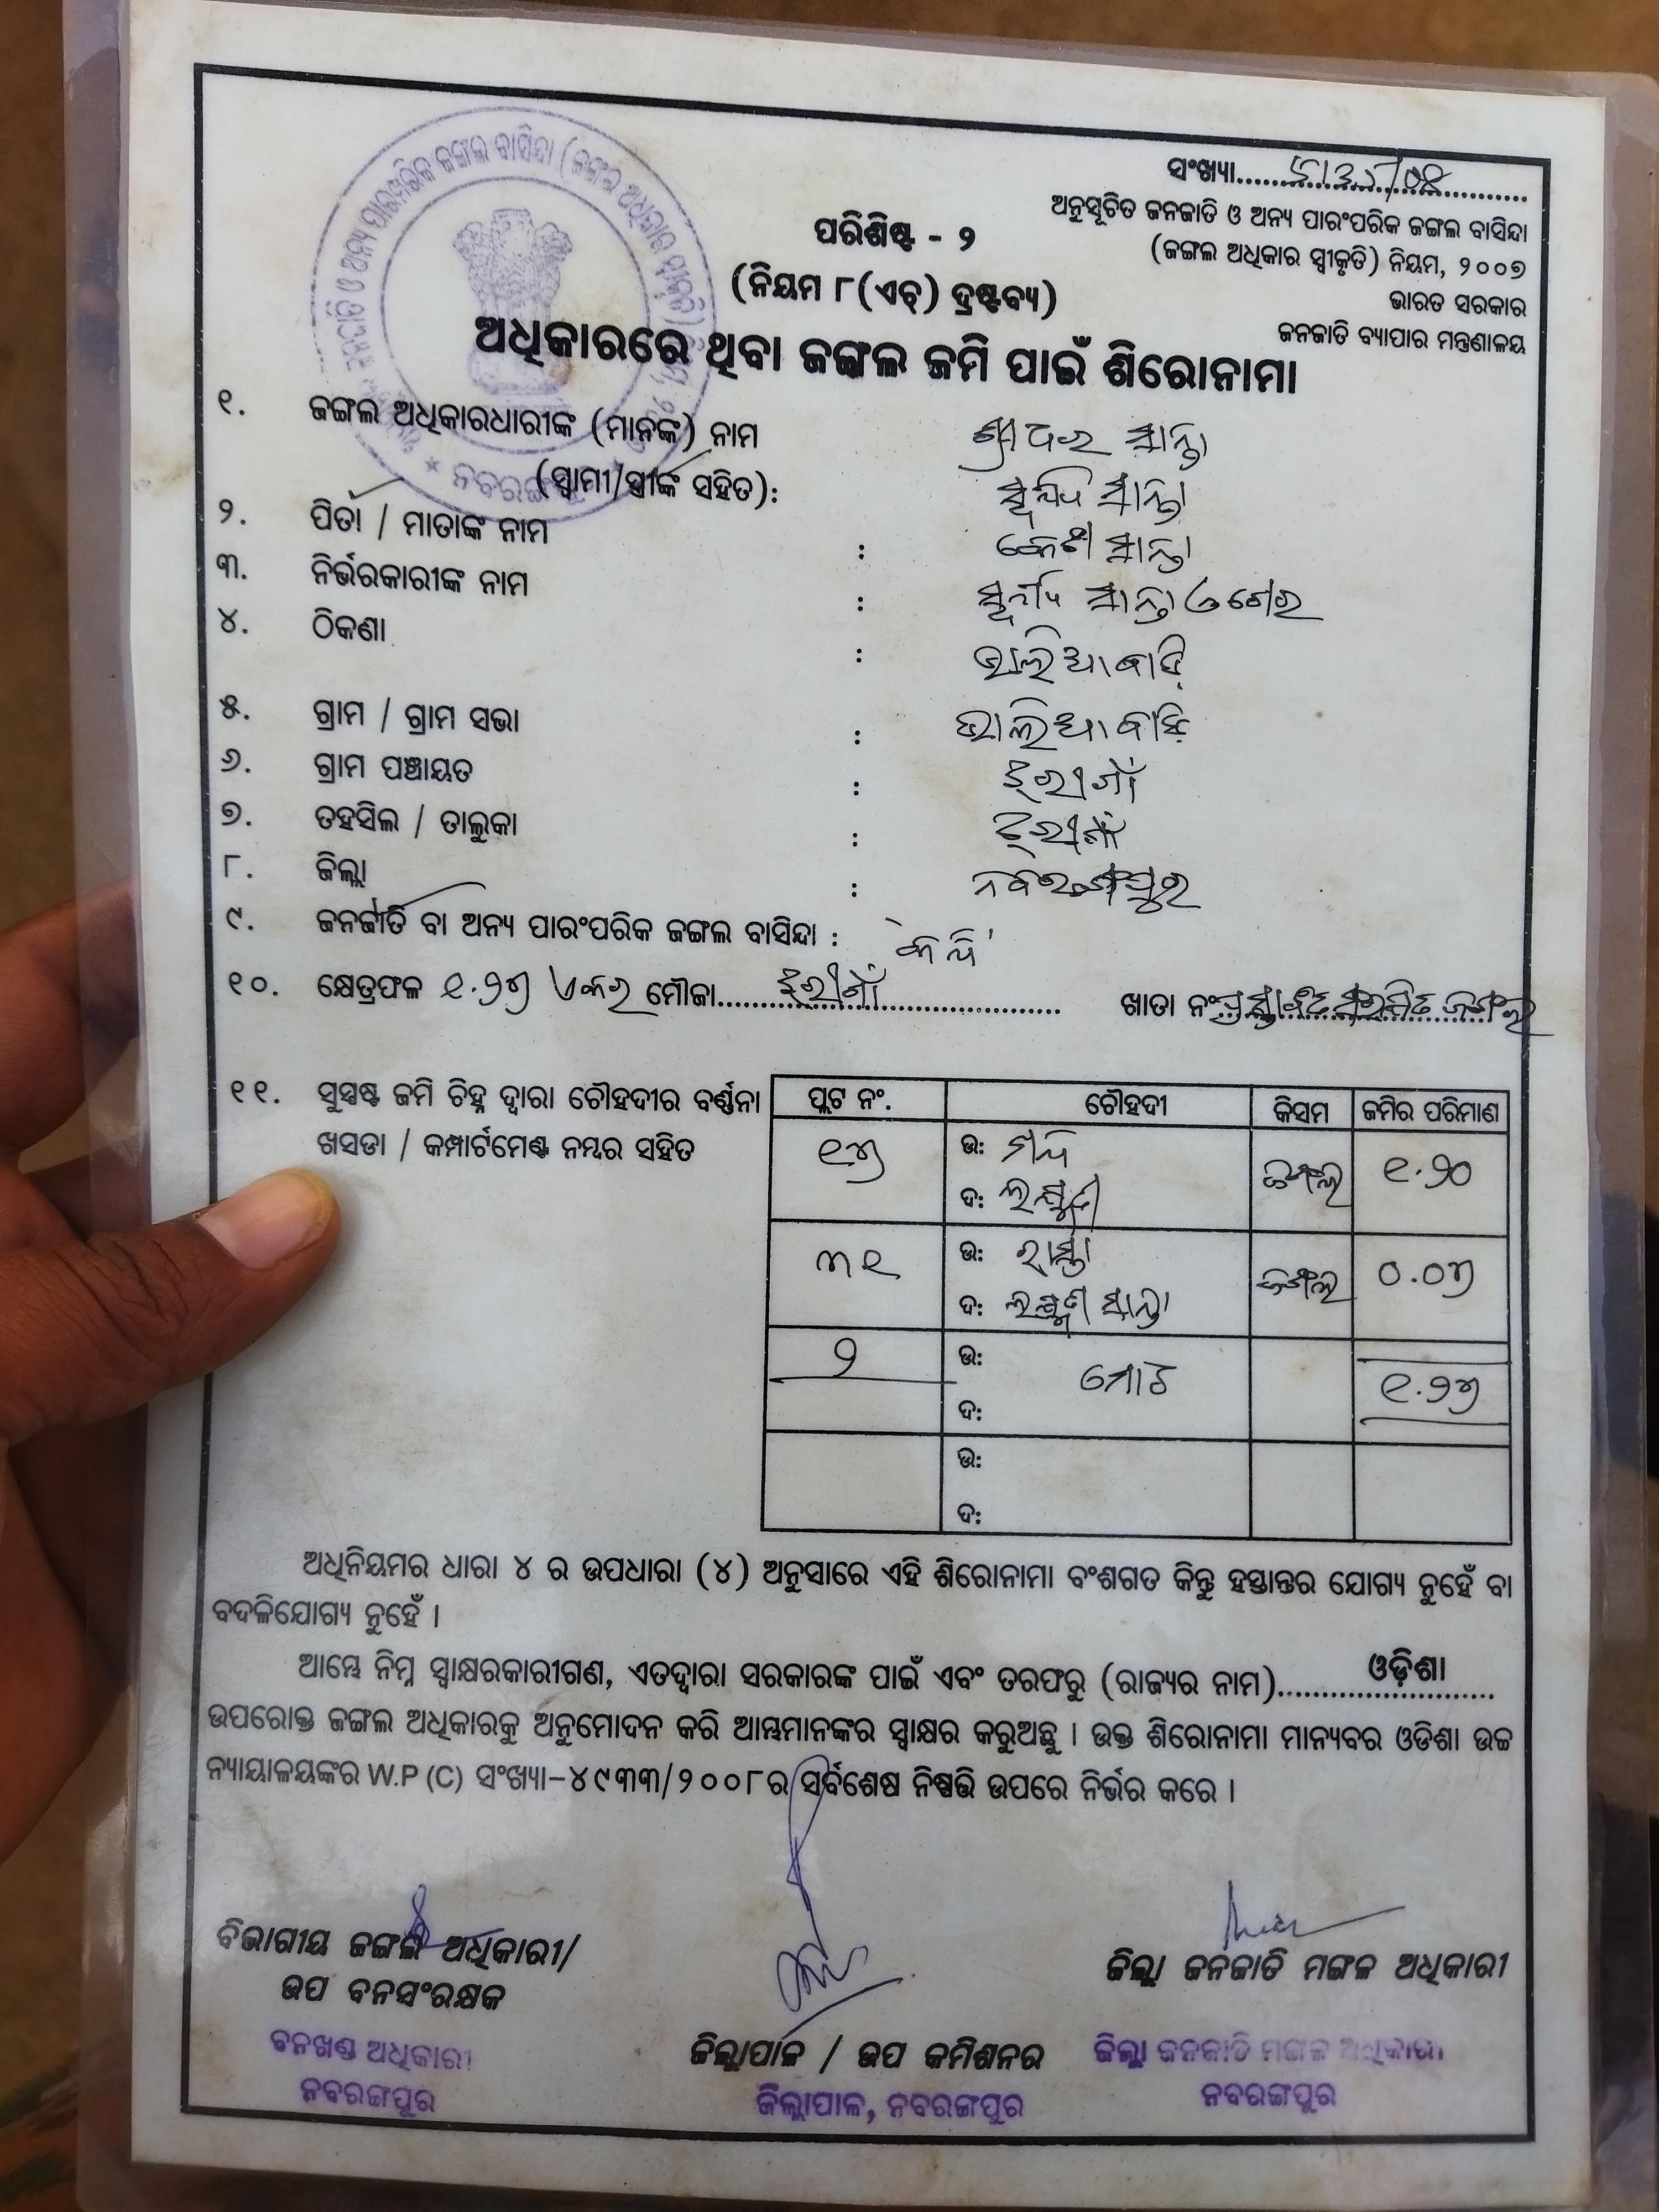 ସଂଖ୍ୟା
ଅନୁସୂଚିତ ଜନଜାତି ଓ ଅନ୍ୟ ପାରଂପରିକ ଜଙ୍ଗଲ ବାସିନ୍ଦା
(ଜଙ୍ଗଲ ଅଧିକାର ସ୍ୱୀକୃତି) ନିୟମ, ୨୦୦୭
ଭାରତ ସରକାର
ଜନଜାତି ବ୍ୟାପାର ମନ୍ତ୍ରଣାଳୟ
ପରିଶିଷ୍ଟ - ୨
(ନିୟମ ୮(ଏଚ୍) ଦ୍ରଷ୍ଟବ୍ୟ)
ଅଧିକାରରେ ଥିବା ଜଙ୍ଗଲ ଜମି ପାଇଁ ଶିରୋନାମା
୧. ଜଙ୍ଗଲ ଅଧିକାରଧାରୀଙ୍କ (ମାନଙ୍କ) ନାମ ଶ୍ରୀଧର ସାନ୍ତା
(ସ୍ୱାମୀ/ସ୍ତ୍ରୀଙ୍କ ସହିତ): ସାନ୍ତା
୨. ପିତା / ମାତାଙ୍କ ନାମ : ସାନ୍ତା
୩. ନିର୍ଭରକାରୀଙ୍କ ନାମ : ସାନ୍ତା
୪. ଠିକଣା : ଭାଲିଆବାଡ଼ି
୫. ଗ୍ରାମ / ଗ୍ରାମ ସଭା : ଭାଲିଆବାଡ଼ି
୬. ଗ୍ରାମ ପଞ୍ଚାୟତ : ଝରୀଗାଁ
୭. ତହସିଲ / ତାଲୁକା : ଝରୀଗାଁ
୮. ଜିଲ୍ଲା : ନବରଙ୍ଗପୁର
୯. ଜନଜାତି ବା ଅନ୍ୟ ପାରଂପରିକ ଜଙ୍ଗଲ ବାସିନ୍ଦା :
୧୦. କ୍ଷେତ୍ରଫଳ ୧.୨୫ ଏକର ମୌଜା ଝରୀଗାଁ ଖାତା ନଂ ପ୍ରସ୍ତାବିତ ସଂରକ୍ଷିତ ଜଙ୍ଗଲ
୧୧. ସୁସ୍ପଷ୍ଟ ଜମି ଚିହ୍ନ ଦ୍ୱାରା ଚୌହଦୀର ବର୍ଣ୍ଣନା
ଖସଡା / କମ୍ପାର୍ଟମେଣ୍ଟ ନମ୍ବର ସହିତ
ପ୍ଲଟ ନଂ. ଚୌହଦୀ କିସମ ଜମିର ପରିମାଣ
୧୫ ଉ: ଜଙ୍ଗଲ ୧.୨୦
ଦ:
୩୧ ଉ: ରାସ୍ତା ଜଙ୍ଗଲ ୦.୦୫
ଦ: ଲକ୍ଷ୍ମଣ ସାନ୍ତା
୨ ଉ: ମୋଟ ୧.୨୫
ଦ:
ଉ:
ଦ:
ଅଧିନିୟମର ଧାରା ୪ ର ଉପଧାରା (୪) ଅନୁସାରେ ଏହି ଶିରୋନାମା ବଂଶଗତ କିନ୍ତୁ ହସ୍ତାନ୍ତର ଯୋଗ୍ୟ ନୁହେଁ ବା
ବଦଳିଯୋଗ୍ୟ ନୁହେଁ ।
ଆମ୍ଭେ ନିମ୍ନ ସ୍ୱାକ୍ଷରକାରୀଗଣ, ଏତଦ୍ୱାରା ସରକାରଙ୍କ ପାଇଁ ଏବଂ ତରଫରୁ (ରାଜ୍ୟର ନାମ) ଓଡ଼ିଶା
ଉପରୋକ୍ତ ଜଙ୍ଗଲ ଅଧିକାରକୁ ଅନୁମୋଦନ କରି ଆମ୍ଭମାନଙ୍କର ସ୍ୱାକ୍ଷର କରୁଅଛୁ । ଉକ୍ତ ଶିରୋନାମା ମାନ୍ୟବର ଓଡିଶା ଉଚ୍ଚ
ନ୍ୟାୟାଳୟଙ୍କର W.P (C) ସଂଖ୍ୟା–୪୯୩୩/୨୦୦୮ର ସର୍ବଶେଷ ନିଷ୍ପତ୍ତି ଉପରେ ନିର୍ଭର କରେ ।
ବିଭାଗୀୟ ଜଙ୍ଗଲ ଅଧିକାରୀ/
ଉପ ବନସଂରକ୍ଷକ
ବନଖଣ୍ଡ ଅଧିକାରୀ
ନବରଙ୍ଗପୁର
ଜିଲ୍ଲାପାଳ / ଉପ କମିଶନର
ଜିଲ୍ଲାପାଳ, ନବରଙ୍ଗପୁର
ଜିଲ୍ଲା ଜନଜାତି ମଙ୍ଗଳ ଅଧିକାରୀ
ଜିଲ୍ଲା ଜନଜାତି ମଙ୍ଗଳ ଅଧିକାରୀ
ନବରଙ୍ଗପୁର